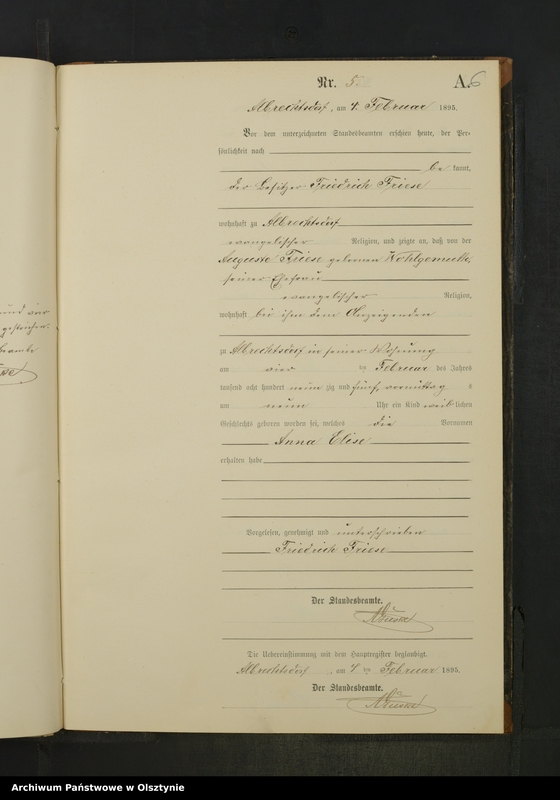 und vor
gestrichen.
Nr. 5 A. 6
Albrechtsdorf, am 4. Februar 1895.
Vor dem unterzeichneten Standesbeamten erschien heute, der Per-
sönlichkeit nach
be kannt,
der Besitzer Friedrich Friese
wohnhaft zu Albrechtsdorf
evangelischer Religion, und zeigte an, daß von der
Auguste Friese gebornen Wohlgemuth,
seiner Ehefrau
evangelischer Religion,
wohnhaft bei ihm dem Anzeigenden
zu Albrechtsdorf in seiner Wohnung
am vier ten Februar des Jahres
tausend acht hundert neun zig und fünf, vormittag s
um neun Uhr ein Kind weib lichen
Geschlechts geboren worden sei, welches die Vornamen
Anna Elise
erhalten habe
Vorgelesen, genehmigt und unterschrieben
Friedrich Friese
Der Standesbeamte.
Die Uebereinstimmung mit dem Hauptregister beglaubigt.
Albrechtsdorf, am 4 ten Februar 1895.
Der Standesbeamte.
Archiwum Państwowe w Olsztynie